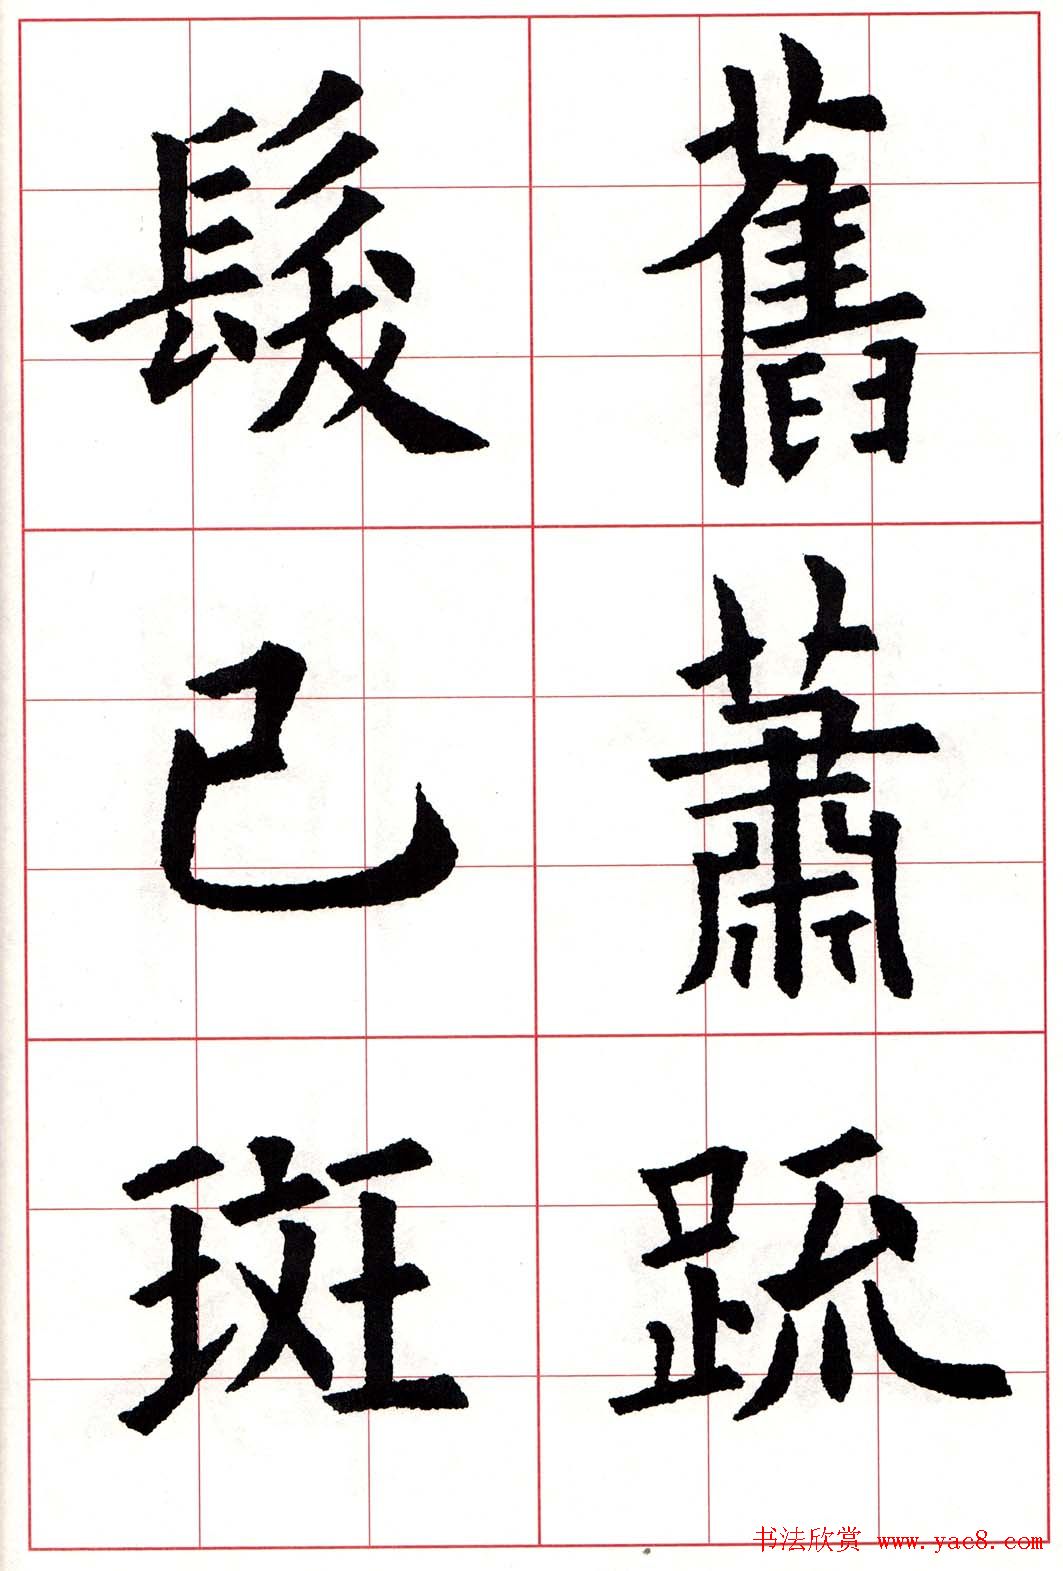 舊蕭䟽
髮已斑
书法欣赏 www.yac8.com